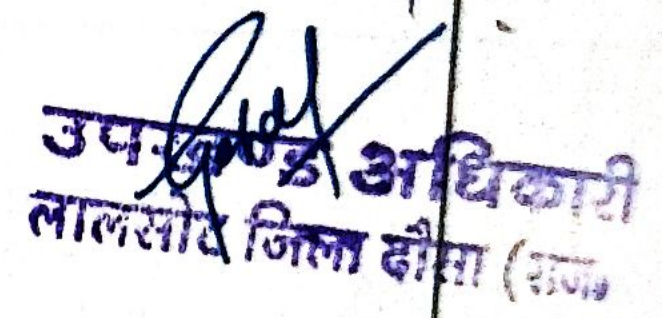 उपखण्ड अधिकारी
लालसोट जिला दौसा (राज.